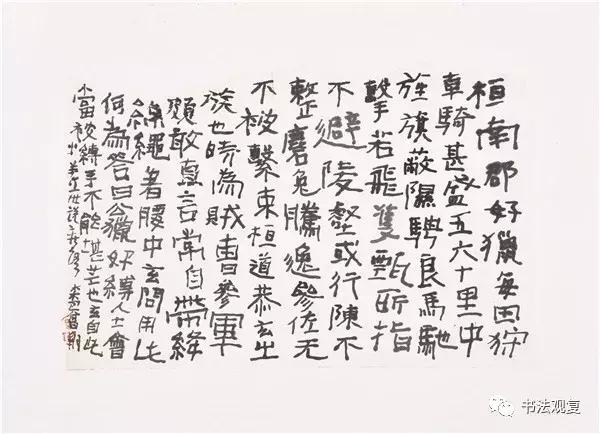 桓南郡好獵每田狩
車騎甚盛五六十里中
旌旗蔽隰騁良馬馳
擊若飛雙甄所指
不避陵壑或行陳不
整麏兔騰逸參佐无
不被繫束桓道恭玄之
族也時為賊曹參軍
頗敢直言常自帶絳
綿繩著腰中玄問用此
何為答曰公獵好縛人士會
當被縛手不能堪芒也玄自此
小 世說新語
书法观复